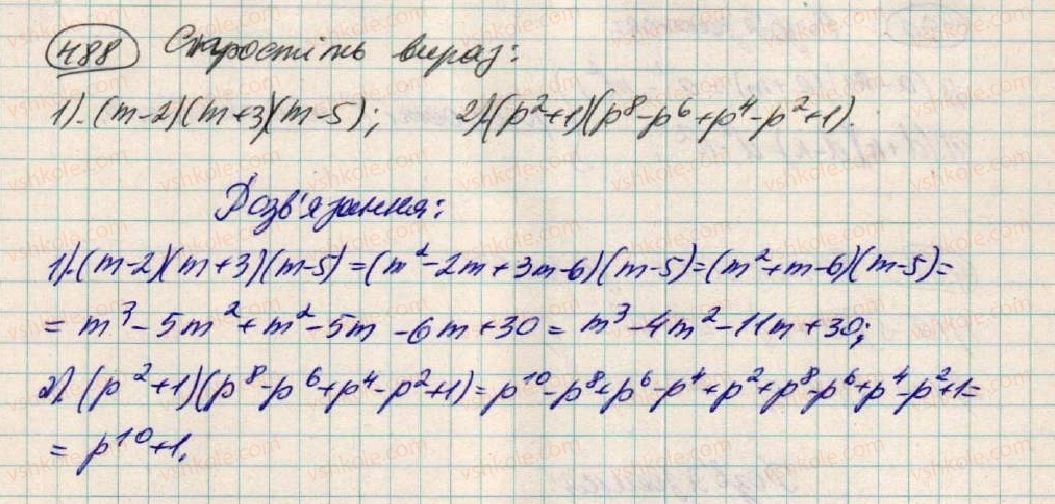 488 Спростіть вираз:
1). (m-2)(m+3)(m-5); 2). (p²+1)(p⁸-p⁶+p⁴-p²+1).
Розв'язання:
1). (m-2)(m+3)(m-5)=(m²-2m+3m-6)(m-5)=(m²+m-6)(m-5)=
= m³-5m²+m²-5m-6m+30= m³-4m²-11m+30;
2). (p²+1)(p⁸-p⁶+p⁴-p²+1)=p¹⁰-p⁸+p⁶-p⁴+p²+p⁸-p⁶+p⁴-p²+1=
= p¹⁰+1.
vshkole.com